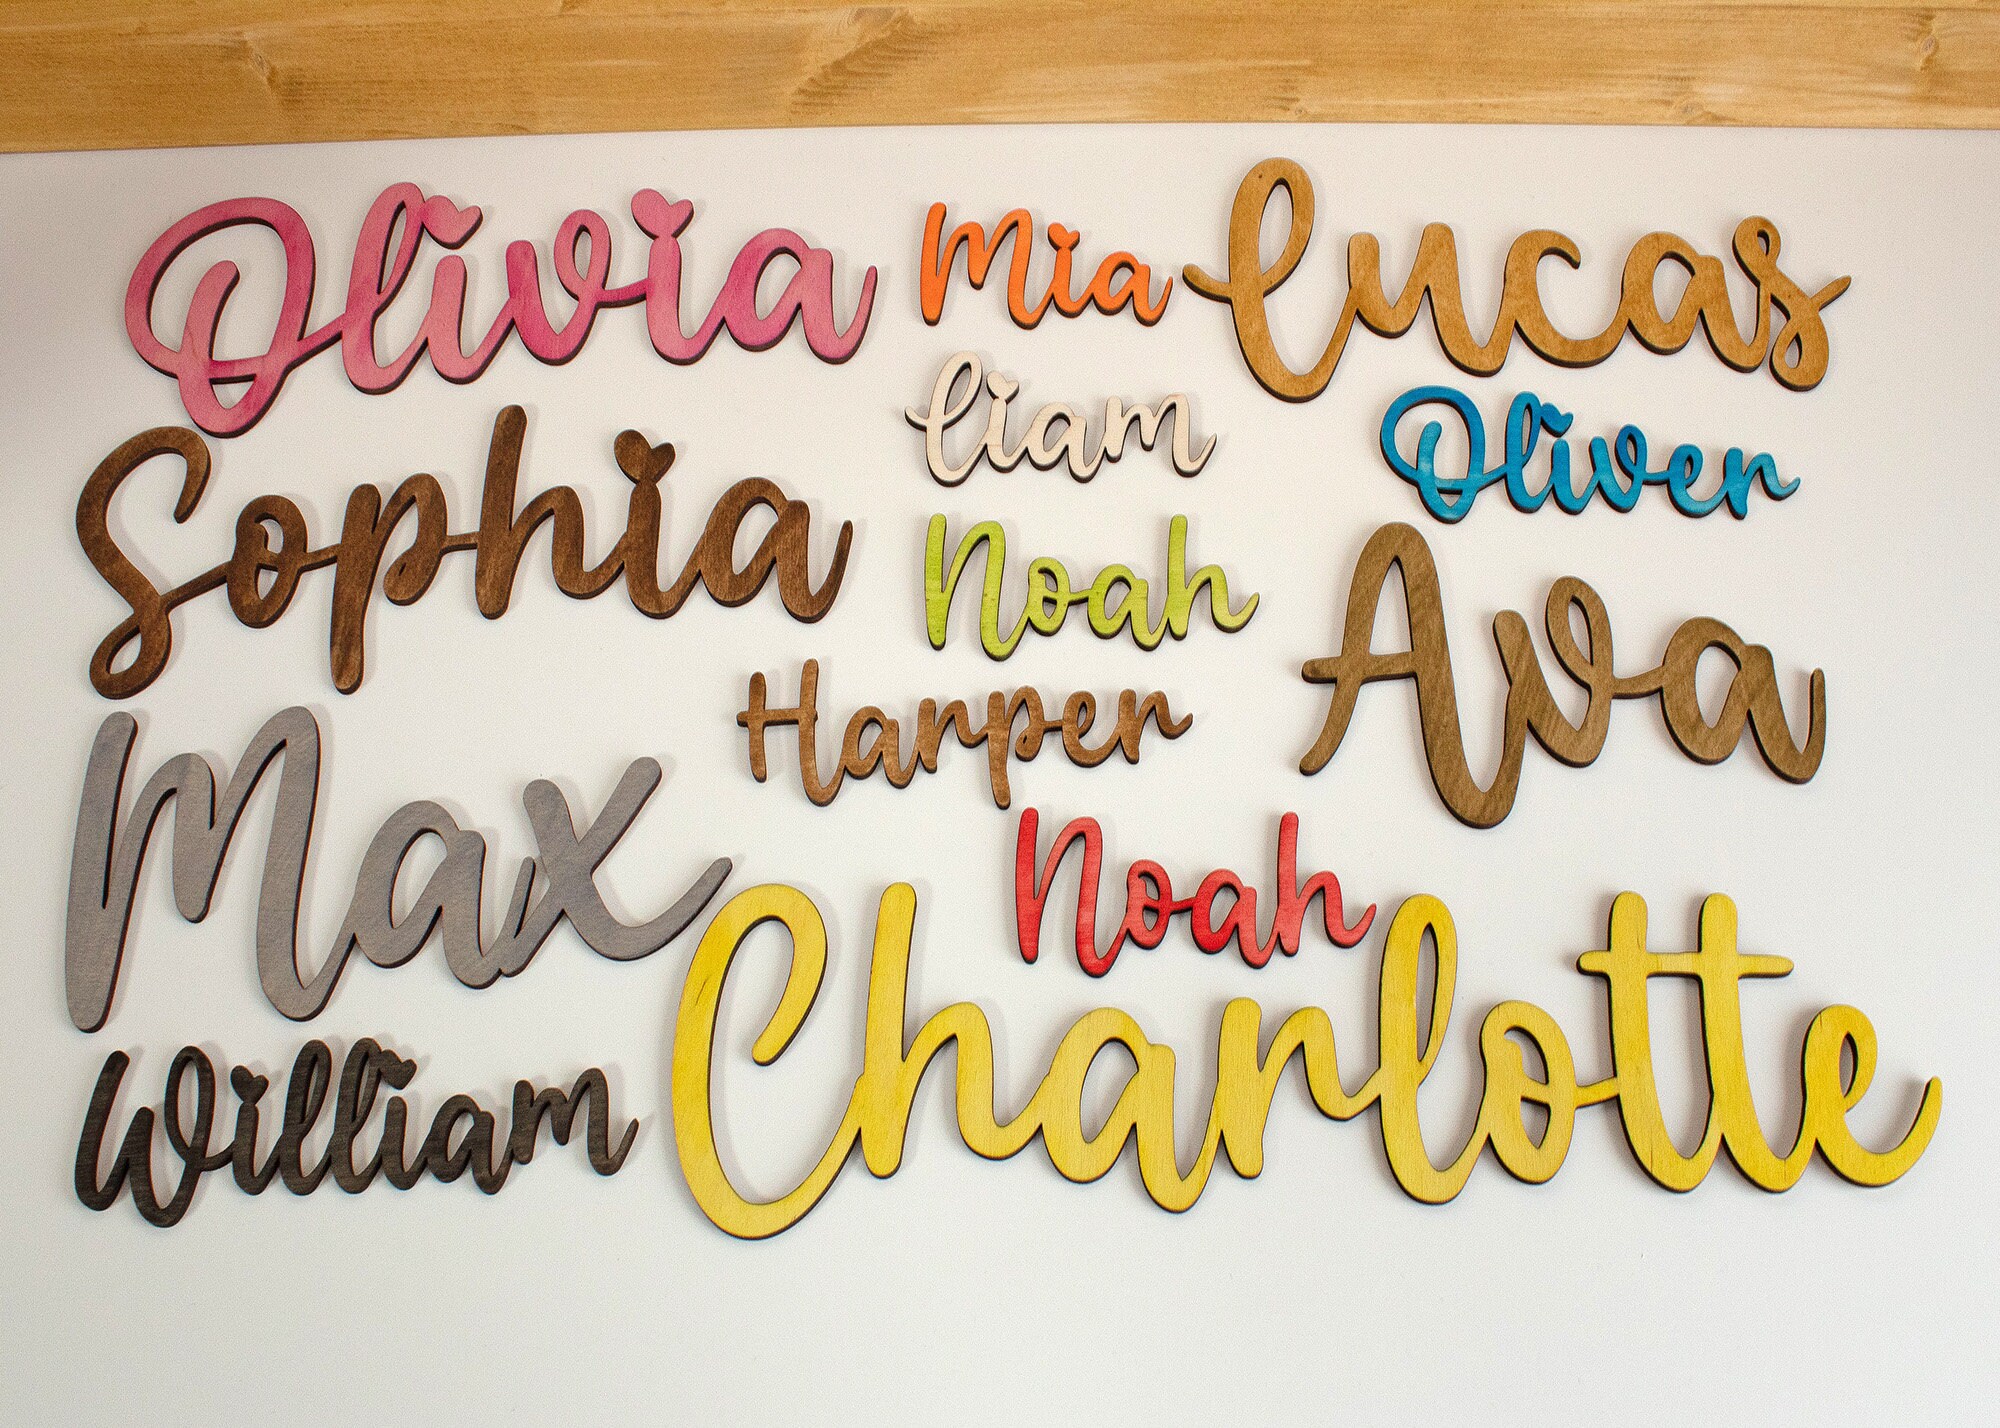 Olivia
Mia
Lucas
Liam
Oliver
Sophia
Noah
Ava
Harper
Max
Noah
Charlotte
William